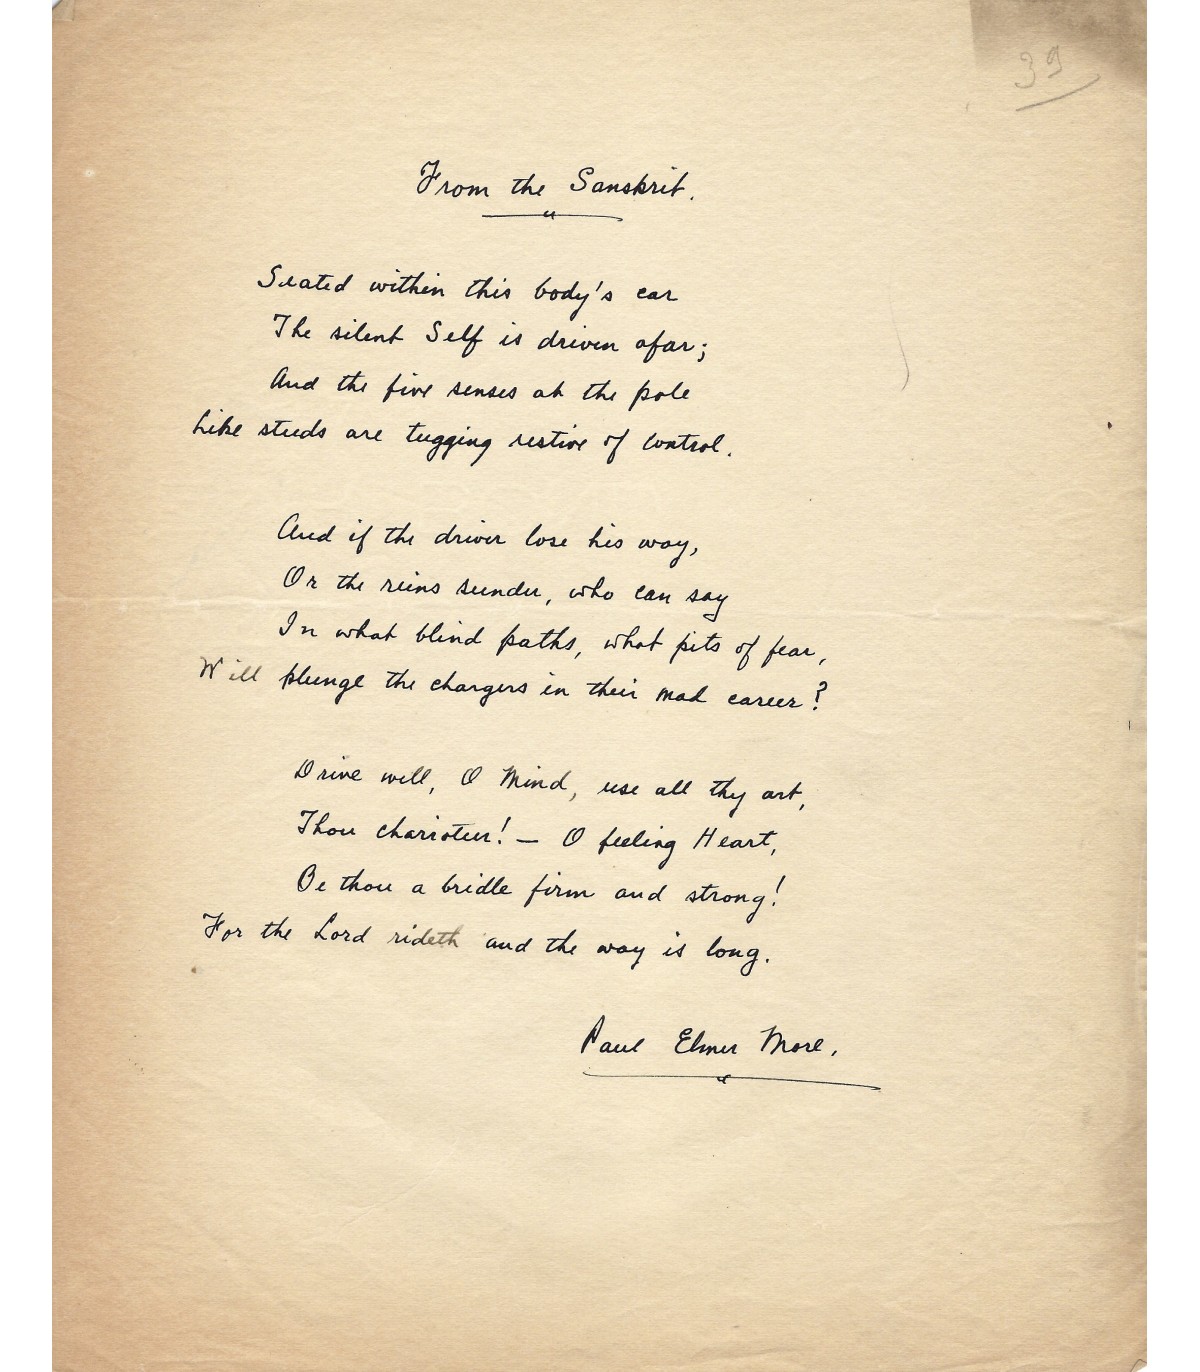 39
From the Sanskrit.
Seated within this body's car
The silent Self is driven afar;
And the five senses at the pole
Like steeds are tugging restive of control.
And if the driver lose his way,
Or the reins sunder, who can say
In what blind paths, what pits of fear,
Will plunge the chargers in their mad career?
Drive well, O Mind, use all thy art,
Thou charioteer! — O feeling Heart,
Be thou a bridle firm and strong!
For the Lord rideth and the way is long.
Paul Elmer More.